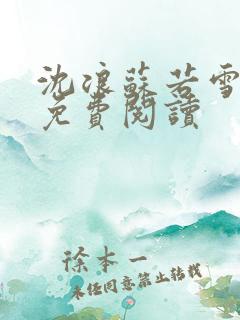 沈浪蘇若雪
免費閱讀
徐本一
未经同意禁止转载